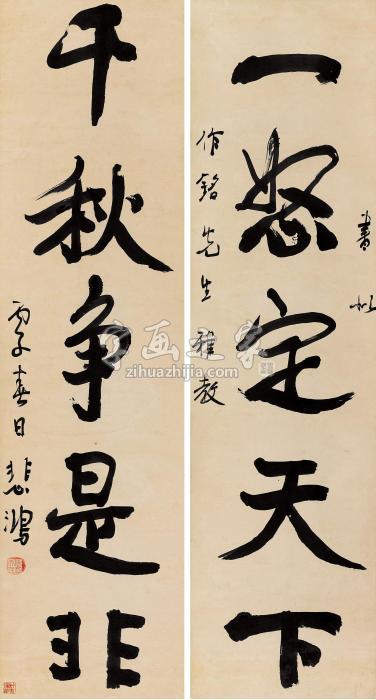 書似
一怒定天下
作銘先生雅教
千秋争是非
丙子春日 悲鴻
字画之家
zihuazhijia.com